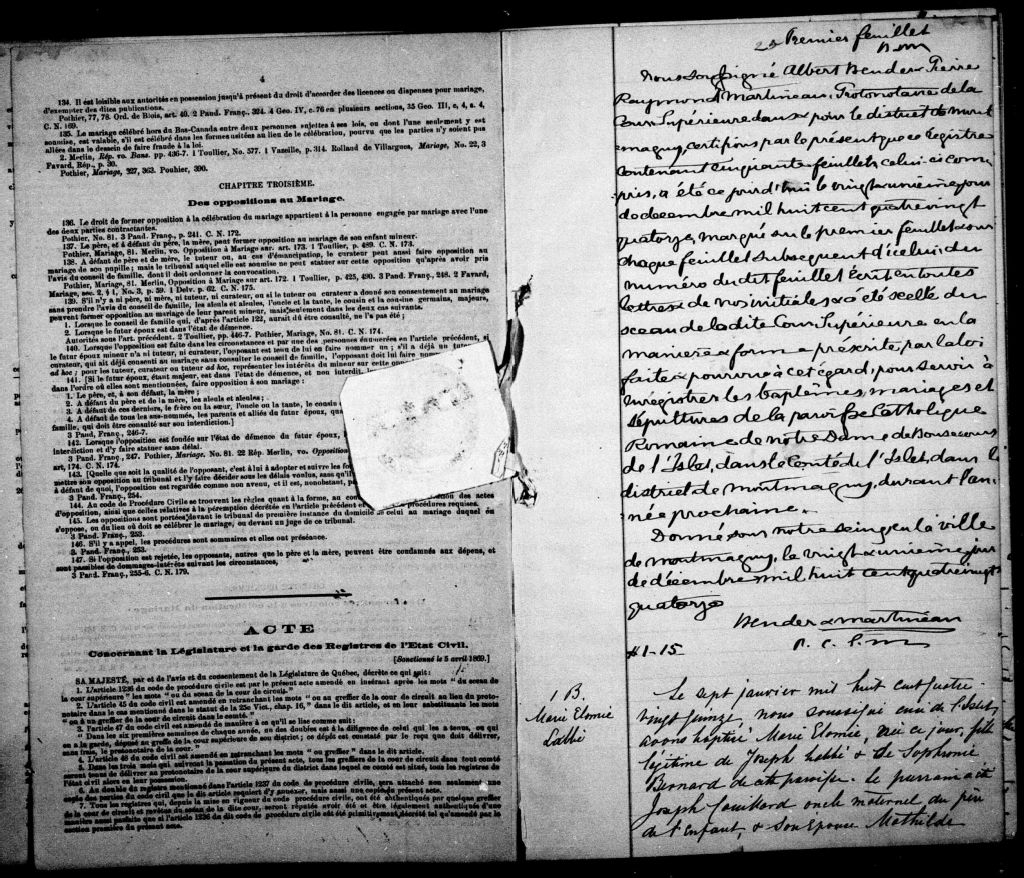 4
134. Il est loisible aux autorités en possession jusqu'à présent du droit d'accorder des licences ou dispenses pour mariage,
d'exempter des dites publications.
Pothier, 77, 78. Ord. de Blois, art. 40. 2 Pand. Franç., 324. 4 Geo. IV, c. 76 en plusieurs sections, 35 Geo. III, c. 4, s. 4,
C. N. 169.
135. Le mariage célébré hors du Bas-Canada entre deux personnes sujettes à ses lois, ou dont l'une seulement y est
soumise, est valable, s'il est célébré dans les formes usitées au lieu de la célébration, pourvu que les parties n'y soient pas
allées dans le dessein de faire fraude à la loi.
2. Merlin, Rép. vo. Bans. pp. 436-7. 1 Toullier, No. 577. 1 Vazeille, p. 314. Rolland de Villargues, Mariage, No. 22, 3
Favard, Rép., p. 30.
Pothier, Mariage, 327, 363. Pouhier, 390.
CHAPITRE TROISIÈME.
Des oppositions au Mariage.
136. Le droit de former opposition à la célébration du mariage appartient à la personne engagée par mariage avec l'une
des deux parties contractantes.
Pothier, No. 81. 3 Pand. Franç., p. 241. C. N. 172.
137. Le père, et à défaut du père, la mère, peut former opposition au mariage de son enfant mineur.
Pothier, Mariage, 81. Merlin, vo. Opposition à Mariage sur. art. 173. 1 Toullier, p. 489. C. N. 173.
138. A défaut de père et de mère, le tuteur ou, au cas d'émancipation, le curateur peut aussi faire opposition au
mariage de son pupille; mais le tribunal auquel elle est soumise ne peut statuer sur cette opposition qu'après avoir pris
l'avis du conseil de famille, dont il doit ordonner la convocation.
Pothier, Mariage, 81. Merlin, Opposition à Mariage sur art. 172. 1 Toullier, p. 425, 490. 3 Pand. Franç., 248. 2 Favard,
Mariage, sec. 2, § 1, No. 3, p. 59. 1 Delv. p. 62. C. N. 175.
139. S'il n'y a ni père, ni mère, ni tuteur, ni curateur, ou si le tuteur ou curateur a donné son consentement au mariage
sans prendre l'avis du conseil de famille, les aïeuls et aïeules, l'oncle et la tante, le cousin et la cousine germains, majeurs,
peuvent former opposition au mariage de leur parent mineur, mais seulement dans les deux cas suivants.
1. Lorsque le conseil de famille qui, d'après l'article 122, aurait dû être consulté, ne l'a pas été;
2. Lorsque le futur époux est dans l'état de démence.
Autorités sous l'art. précédent. 2 Toullier, pp. 446-7. Pothier, Mariage, No. 81. C. N. 174.
140. Lorsque l'opposition est faite dans ces circonstances et par une des personnes énumérées en l'article précédent, si
le futur époux mineur n'a ni tuteur, ni curateur, l'opposant est tenu de lui en faire nommer un; s'il a déjà un
curateur, qui ait déjà consenti au mariage sans consulter le conseil de famille, l'opposant doit lui faire
ad hoc; pour les tuteur, curateur ou tuteur ad hoc, représenter les intérêts du mineur sur cette
141. [Si le futur époux, étant majeur, est dans l'état de démence, et non interdit,
dans l'ordre où elles sont mentionnées, faire opposition à son mariage:
1. Le père, et, à son défaut, la mère;
2. A défaut du père et de la mère, les aïeuls et aïeules;
3. A défaut de ces derniers, le frère ou la sœur, l'oncle ou la tante, le cousin
4. A défaut de tous les sus-nommés, les parents et alliés du futur époux,
famille, qui doit être consulté sur son interdiction.]
3 Pand. Franç., 246-7.
142. Lorsque l'opposition est fondée sur l'état de démence du futur époux,
interdiction et d'y faire statuer sans délai.
3 Pand. Franç., 247. Pothier, Mariage. No. 81. 22 Rép. Merlin, vo. Opposition
art, 174. C. N. 174.
143. [Quelle que soit la qualité de l'opposant, c'est à lui à adopter et suivre les
mettre son opposition au tribunal et l'y faire décider sous les délais voulus, sans
à défaut de quoi, l'opposition est regardée comme non avenu, et il est, nonobstant,
3 Pand. Franç., 254.
144. Au code de Procédure Civile se trouvent les règles quant à la forme, au des actes
d'opposition, ainsi que celles relatives à la péremption décrétée en l'article précédent et procédures requises.
145. Les oppositions sont portées devant le tribunal de première instance du domicile de celui au mariage duquel on
s'oppose, ou du lieu où doit se célébrer le mariage, ou devant un juge de ce tribunal.
3 Pand. Franç., 253.
146. S'il y a appel, les procédures sont sommaires et elles ont préséance.
3. Pand. Franç., 253.
147. Si l'opposition est rejetée, les opposants, autres que le père et la mère, peuvent être condamnés aux dépens, et
sont passibles de dommages-intérêts suivant les circonstances,
3 Pand. Franç., 255-6. C. N. 179.
ACTE
Concernant la Législature et la garde des Registres de l'Etat Civil.
[Sanctionné le 5 avril 1869.]
SA MAJESTÉ, par et de l'avis et du consentement de la Législature de Québec, décrète ce qui suit:
1. L'article 1236 du code de procédure civile est par le présent acte amendé en insérant après le mots "du sceau de
la cour supérieure" les mots "ou du sceau de la cour de circuit."
2. L'article 45 du code civil est amendé en retranchant les mots "ou au greffier de la cour de circuit au lieu du proto-
notaire dans le cas mentionné dans le statut de la 25e Vict., chap. 16," dans le dit article, et en leur substituant les mots
"ou à un greffier de la cour de circuit dans le comté."
3. L'article 47 du code civil est amendé de manière à ce qu'il se lise comme suit:
"Dans les six premières semaines de chaque année, un des doubles est à la diligence de celui qui les a tenus, ou qui
en a la garde, déposé au greffe de la cour supérieure de son district; ce dépôt est constaté par le reçu que doit délivrer,
sans frais, le protonotaire de la cour."
4. L'article 48 du code civil est amendé en retranchant les mots "ou greffier" dans le dit article.
5. Dans les trois mois qui suivront la passation du présent acte, tous les greffiers de la cour de circuit dans tout comté
seront tenus de délivrer au protonotaire de la cour supérieure du district dans lequel ce comté est situé, tous les registres de
l'état civil alors en leur possession.
6. Au double du registre mentionné dans l'article 1237 du code de procédure civile, sera attaché non seulement une
copie des parties du code civil que le dit article requiert d'y annexer, mais aussi une copie du présent acte.
7. Tous les registres qui, depuis la mise en vigueur du code procédure civile, ont été authentiqués par quelque greffier
de la cour de circuit et revêtus du sceau de la dite cour, seront réputés avoir été et être également authentiqués d'une
manière aussi parfaite que si l'article 1236 du dit code de procédure civile eût été primitivement décrété tel qu'amendé par la
section première du présent acte.
Premier feuillet
B.M
Nous Soussigné Albert Bender & Pierre
Raymond Martineau, Protonotaire de la
Cour Supérieure dans & pour le district de Mont-
magny, certifions par le présent que ce Registre
contenant Cinquante feuillets, celui-ci com-
pris, a été ce jour d'hui le vingt & unième jour
de décembre mil huit cent quatre vingt
quatorze, marqué sur le premier feuillet & sur
chaque feuillet subsequent d'icelui, du
numéro du dit feuillet Ecrit en toutes
lettres & de nos initiales & a été scellé du
sceau de la dite Cour Supérieure en la
manière & forme préscrite, par la loi
faite & pourvue à cet égard, pour servir à
enregistrer les baptêmes, mariages et
Sépultures de la paroisse Catholique
Romaine de notre Dame de Bonsecours
de l'Islet, dans le Comté de l'Islet, dans le
district de Montmagny, durant l'an-
née prochaine.
Donné sous notre seing, en la ville
de Montmagny, le vingt & unième jour
de décembre mil huit cent quatre vingt
quatorze
Bender & Martineau
P. C. S. M
#1-15
1 B.
Marie Elomie
Labbé
Le sept janvier mil huit cent quatre
vingt quinze, nous soussigné curé de l'Islet
avons baptisé Marie Elomie, née ce jour, fille
légitime de Joseph Labbé & de Sophronie
Bernard de cette paroisse. Le parrain a été
Joseph oncle maternel du père
de l'Enfant, & son épouse Mathilde